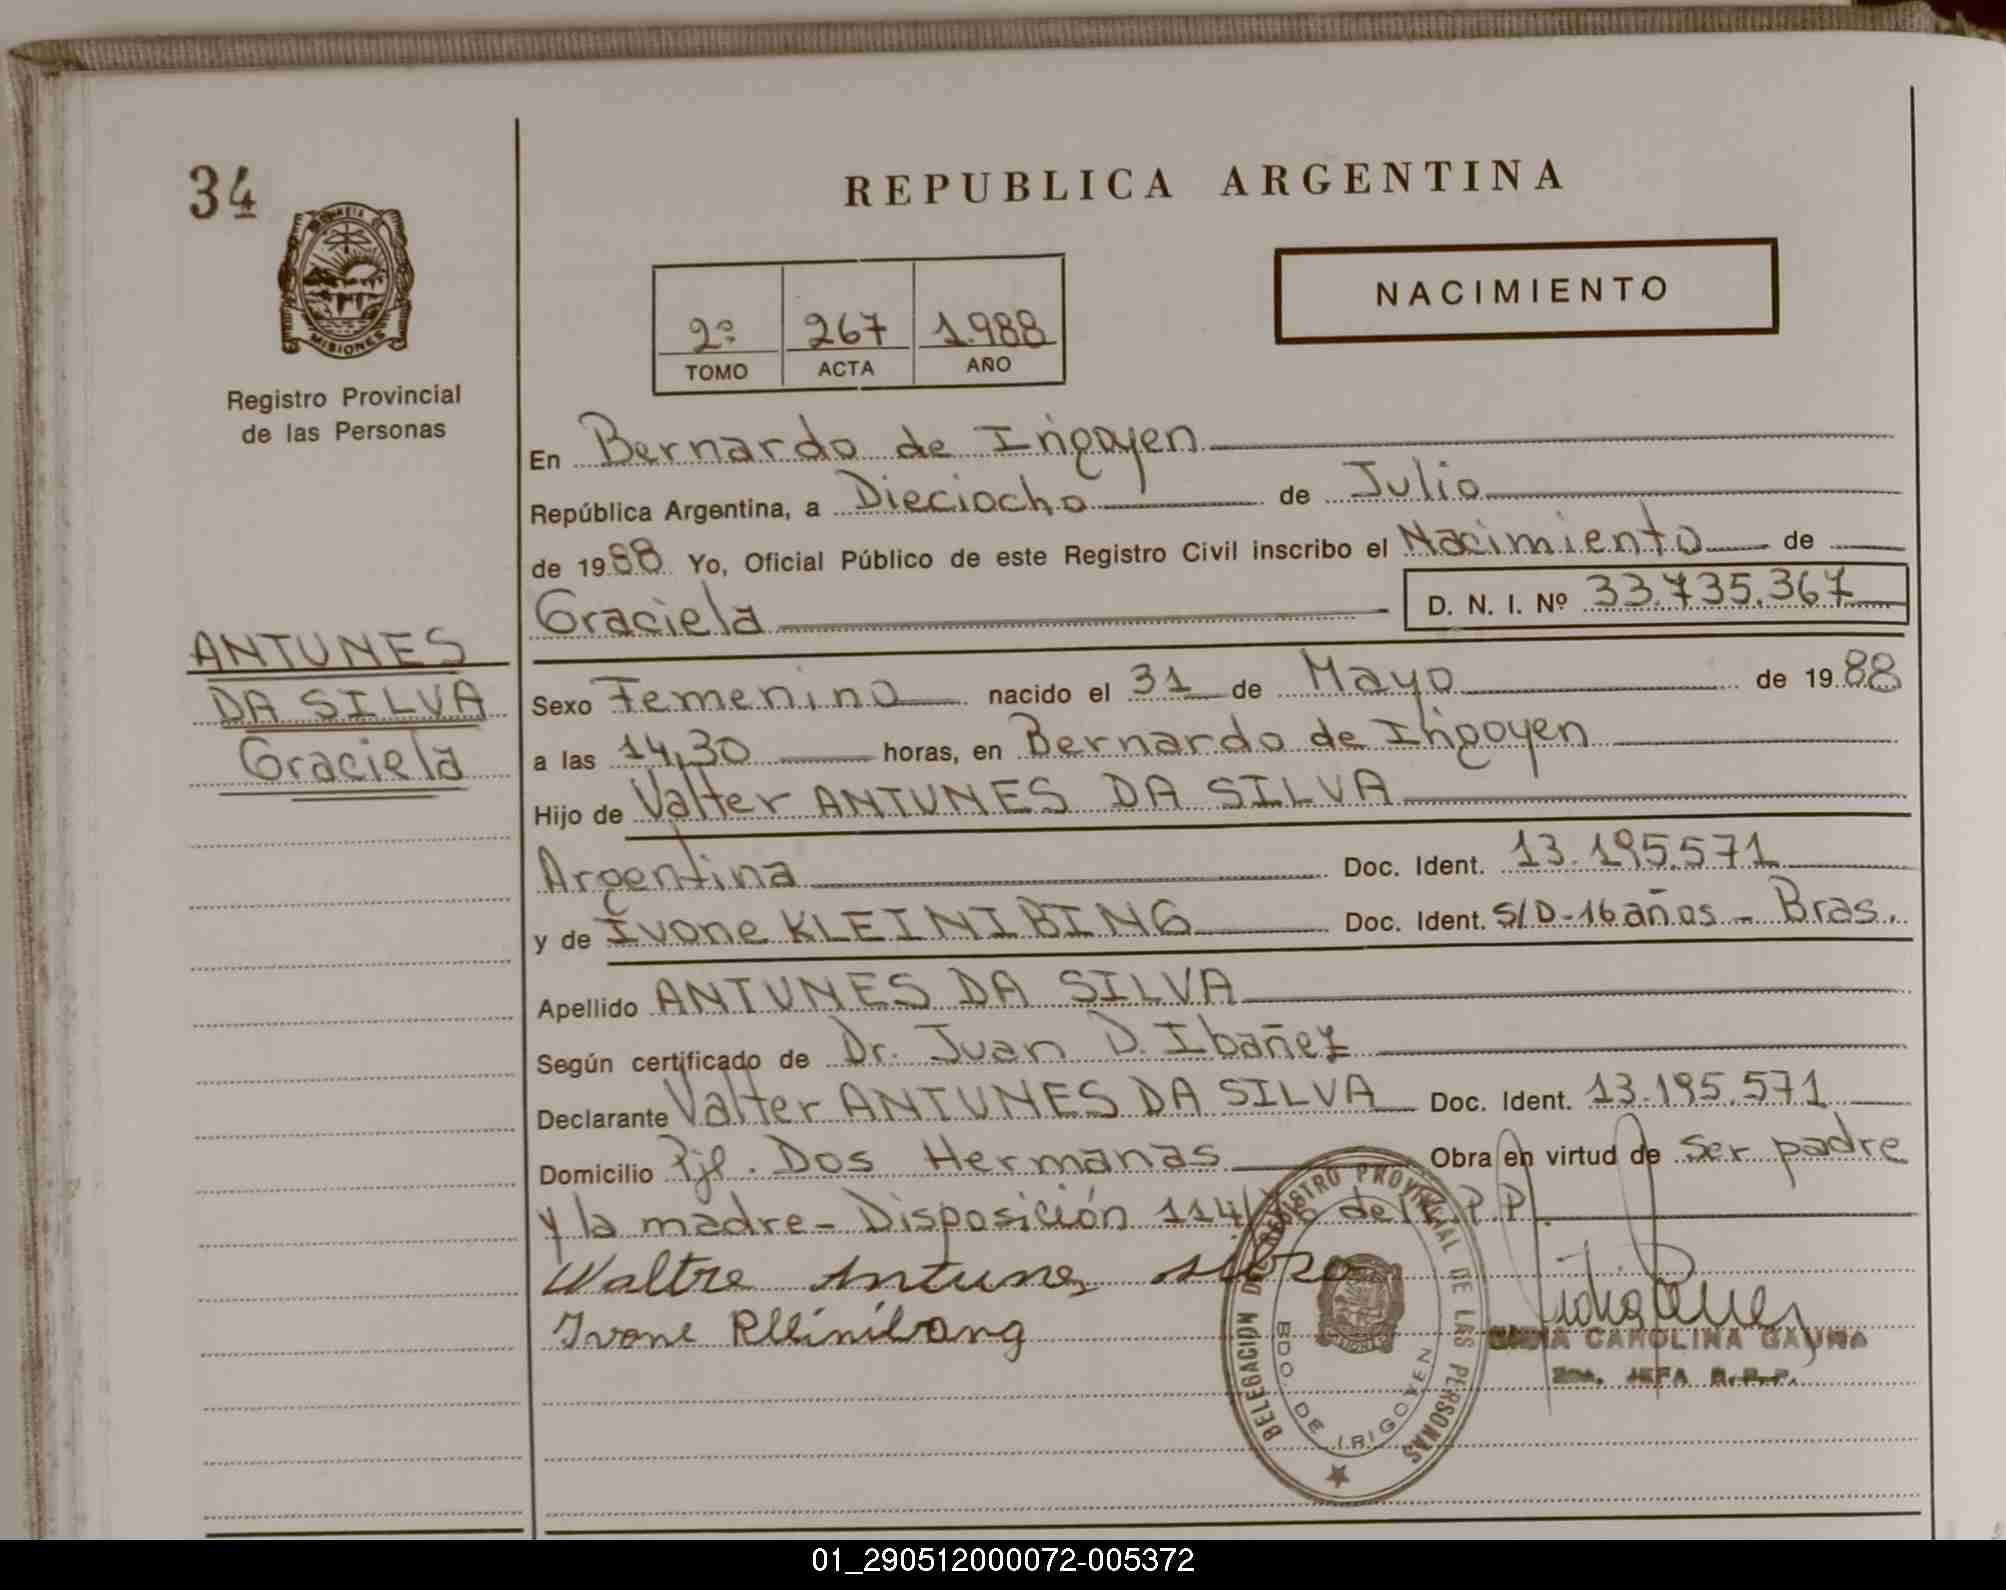 34
MISIONES
Registro Provincial
de las Personas
ANTUNES
DA SILVA
Graciela
REPUBLICA ARGENTINA
2º 267 1.988
TOMO ACTA AÑO
NACIMIENTO
En Bernardo de Irigoyen
República Argentina, a Dieciocho de Julio
de 1988 Yo, Oficial Público de este Registro Civil inscribo el Nacimiento de
Graciela D. N. I. Nº 33.735.367
Sexo Femenino nacido el 31 de Mayo de 1988
a las 14,30 horas, en Bernardo de Irigoyen
Hijo de Valter ANTUNES DA SILVA
Argentina Doc. Ident. 13.195.571
y de Ivone KLEINIBING Doc. Ident. S/D-16 años - Bras.
Apellido ANTUNES DA SILVA
Según certificado de Dr. Juan D. Ibañez
Declarante Valter ANTUNES DA SILVA Doc. Ident. 13.195.571
Domicilio Pje. Dos Hermanas Obra en virtud de ser padre
y la madre - Disposición 114/ de P.P.
Waltre Antunes silva
Ivone
DELEGACION DEL REGISTRO PROVINCIAL DE LAS PERSONAS
BDO. DE IRIGOYEN
CAROLINA GAUNA
JEFA R.P.P.
01_290512000072-005372